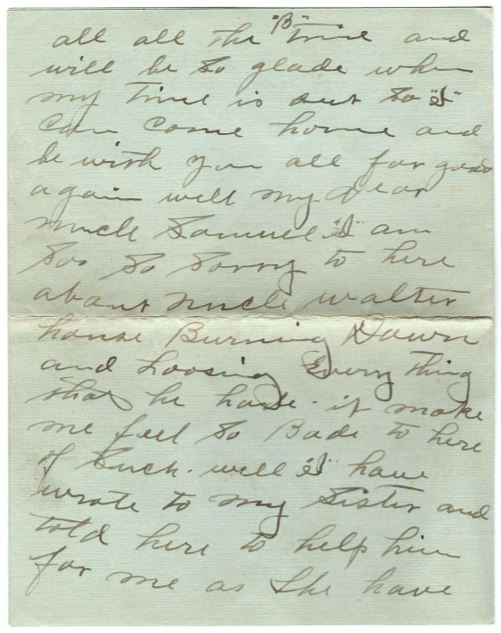 all all the "B" time and
will be so glade when
my time is out so "I"
can come home and
be with you all for good
again well my Dear
uncle Samuel "I" am
soo so sorry to here
about uncle walter
house Burning Down
and Loosing Every thing
that he have. it make
me feel so Bade to here
of such. well "I" have
wrote to my Sister and
told here to help him
for me as she have